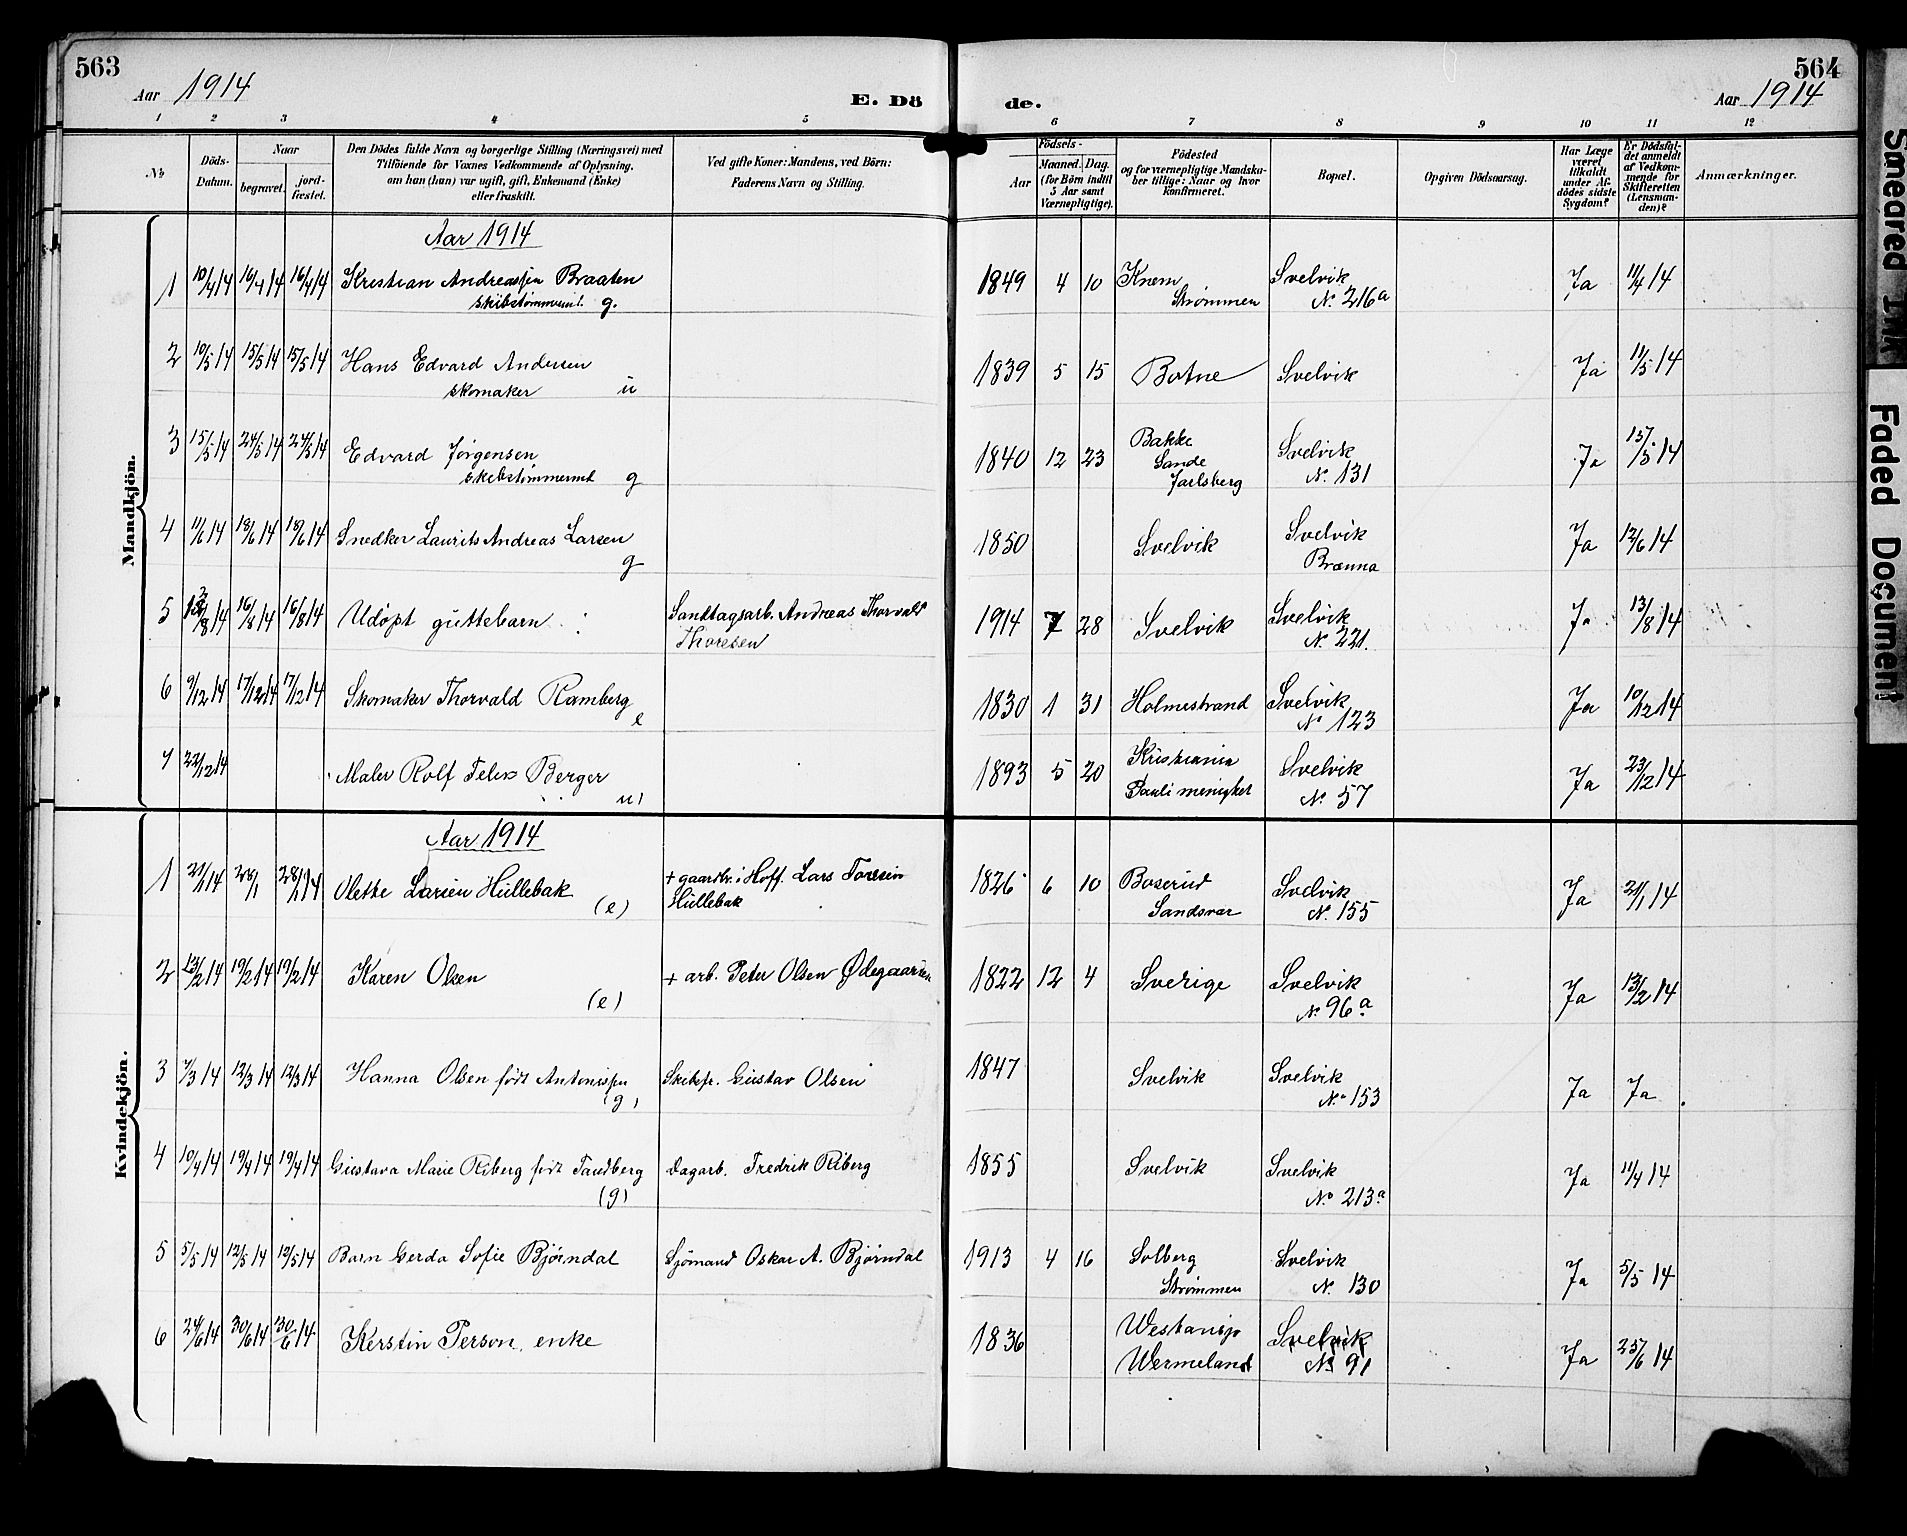 563
Aar 1914
E. Dö
de.
564
Aar 1914
1 2 3 4 5 6 7 8 9 10 11 12
No
Döds-
Datum.
Naar
begravet.
jord-
fæstet.
Den Dödes fulde Navn og borgerlige Stilling (Næringsvei) med
Tilföiende for Voxnes Vedkommende af Oplysning,
om han (hun) var ugift, gift, Enkemand (Enke)
eller fraskilt.
Ved gifte Koner: Mandens, ved Börn:
Faderens Navn og Stilling.
Födsels-
Aar
Maaned. Dag.
(for Börn indtil
5 Aar samt
Værnepligtige).
Födested
og for værnepligtige Mandska-
ber tillige: Naar og hvor
konfirmeret.
Bopæl.
Opgiven Dödsaarsag.
Har Læge
været
tilkaldt
under Af-
dödes sidste
Sygdom?
Er Dödsfal-
det anmeldt
af Vedkom-
mende for
Skifteretten
(Lensman-
den)?
Anmærkninger.
Mandkjön.
Aar 1914
1 10/4 14 16/4 14 16/4 14 Kristian Andreassen Braaten 1849 4 10 Knem Svelvik Ja 11/4 14
skibstømmermd. g. Strømmen No. 216a
2 10/5 14 15/5 14 15/5 14 Hans Edvard Andersen 1839 5 15 Botne Svelvik Ja 11/5 14
skomaker u
3 15/5 14 24/5 14 24/5 14 Edvard Jørgensen 1840 12 23 Bakke Svelvik Ja 15/5 14
skibstømmermd g Sande No. 131
Jarlsberg
4 11/6 14 18/6 14 18/6 14 Snedker Laurits Andreas Larsen 1850 Svelvik Svelvik Ja 12/6 14
g Brænna
5 /8 14 16/8 14 16/8 14 Udøpt guttebarn Sandtagsarb. Andreas Thorvald 1914 7 28 Svelvik Svelvik Ja 13/8 14
Thoresen No. 221.
6 9/12 14 17/12 14 17/12 14 Skomaker Thorvald Ramberg 1830 1 31 Holmestrand Svelvik Ja 10/12 14
e No 123
7 22/12 14 Maler Rolf Felix Berger 1893 5 20 Kristiania Svelvik Ja 23/12 14
u) Pauli menighet No. 57
Kvindekjön.
Aar 1914
1 21/1 14 28/1 28/1 14 Olethe Larsen Hullebak + gaardbr. i Hoff. Lars Toresen 1826 6 10 Boserud Svelvik Ja 21/1 14
(e) Hullebak Sandsvær No. 155
2 13/2 14 19/2 14 19/2 14 Karen Olsen + arb. Peter Olsen Ødegaarden 1822 12 4 Sverige Svelvik Ja 13/2 14
(e) No. 96a
3 7/3 14 12/3 14 12/3 14 Hanna Olsen født Antonissen Skibsf. Gustav Olsen 1847 Svelvik Svelvik Ja Ja
(g) No. 153
4 10/4 14 19/4 14 19/4 14 Gustava Marie Riberg født Tandberg Dagarb. Fredrik Riberg 1855 Svelvik Svelvik Ja 11/4 14
(g) No 213a
5 5/5 14 12/5 14 12/5 14 Barn Gerda Sofie Bjørndal Sjömand Oskar A. Bjørndal 1913 4 16 Solberg Svelvik Ja 5/5 14
Strømmen No. 130
6 24/6 14 30/6 14 30/6 14 Kerstin Person, enke 1836 Svelvik Ja 25/6 14
Wermeland No 91
Smeared Ink
Faded Document